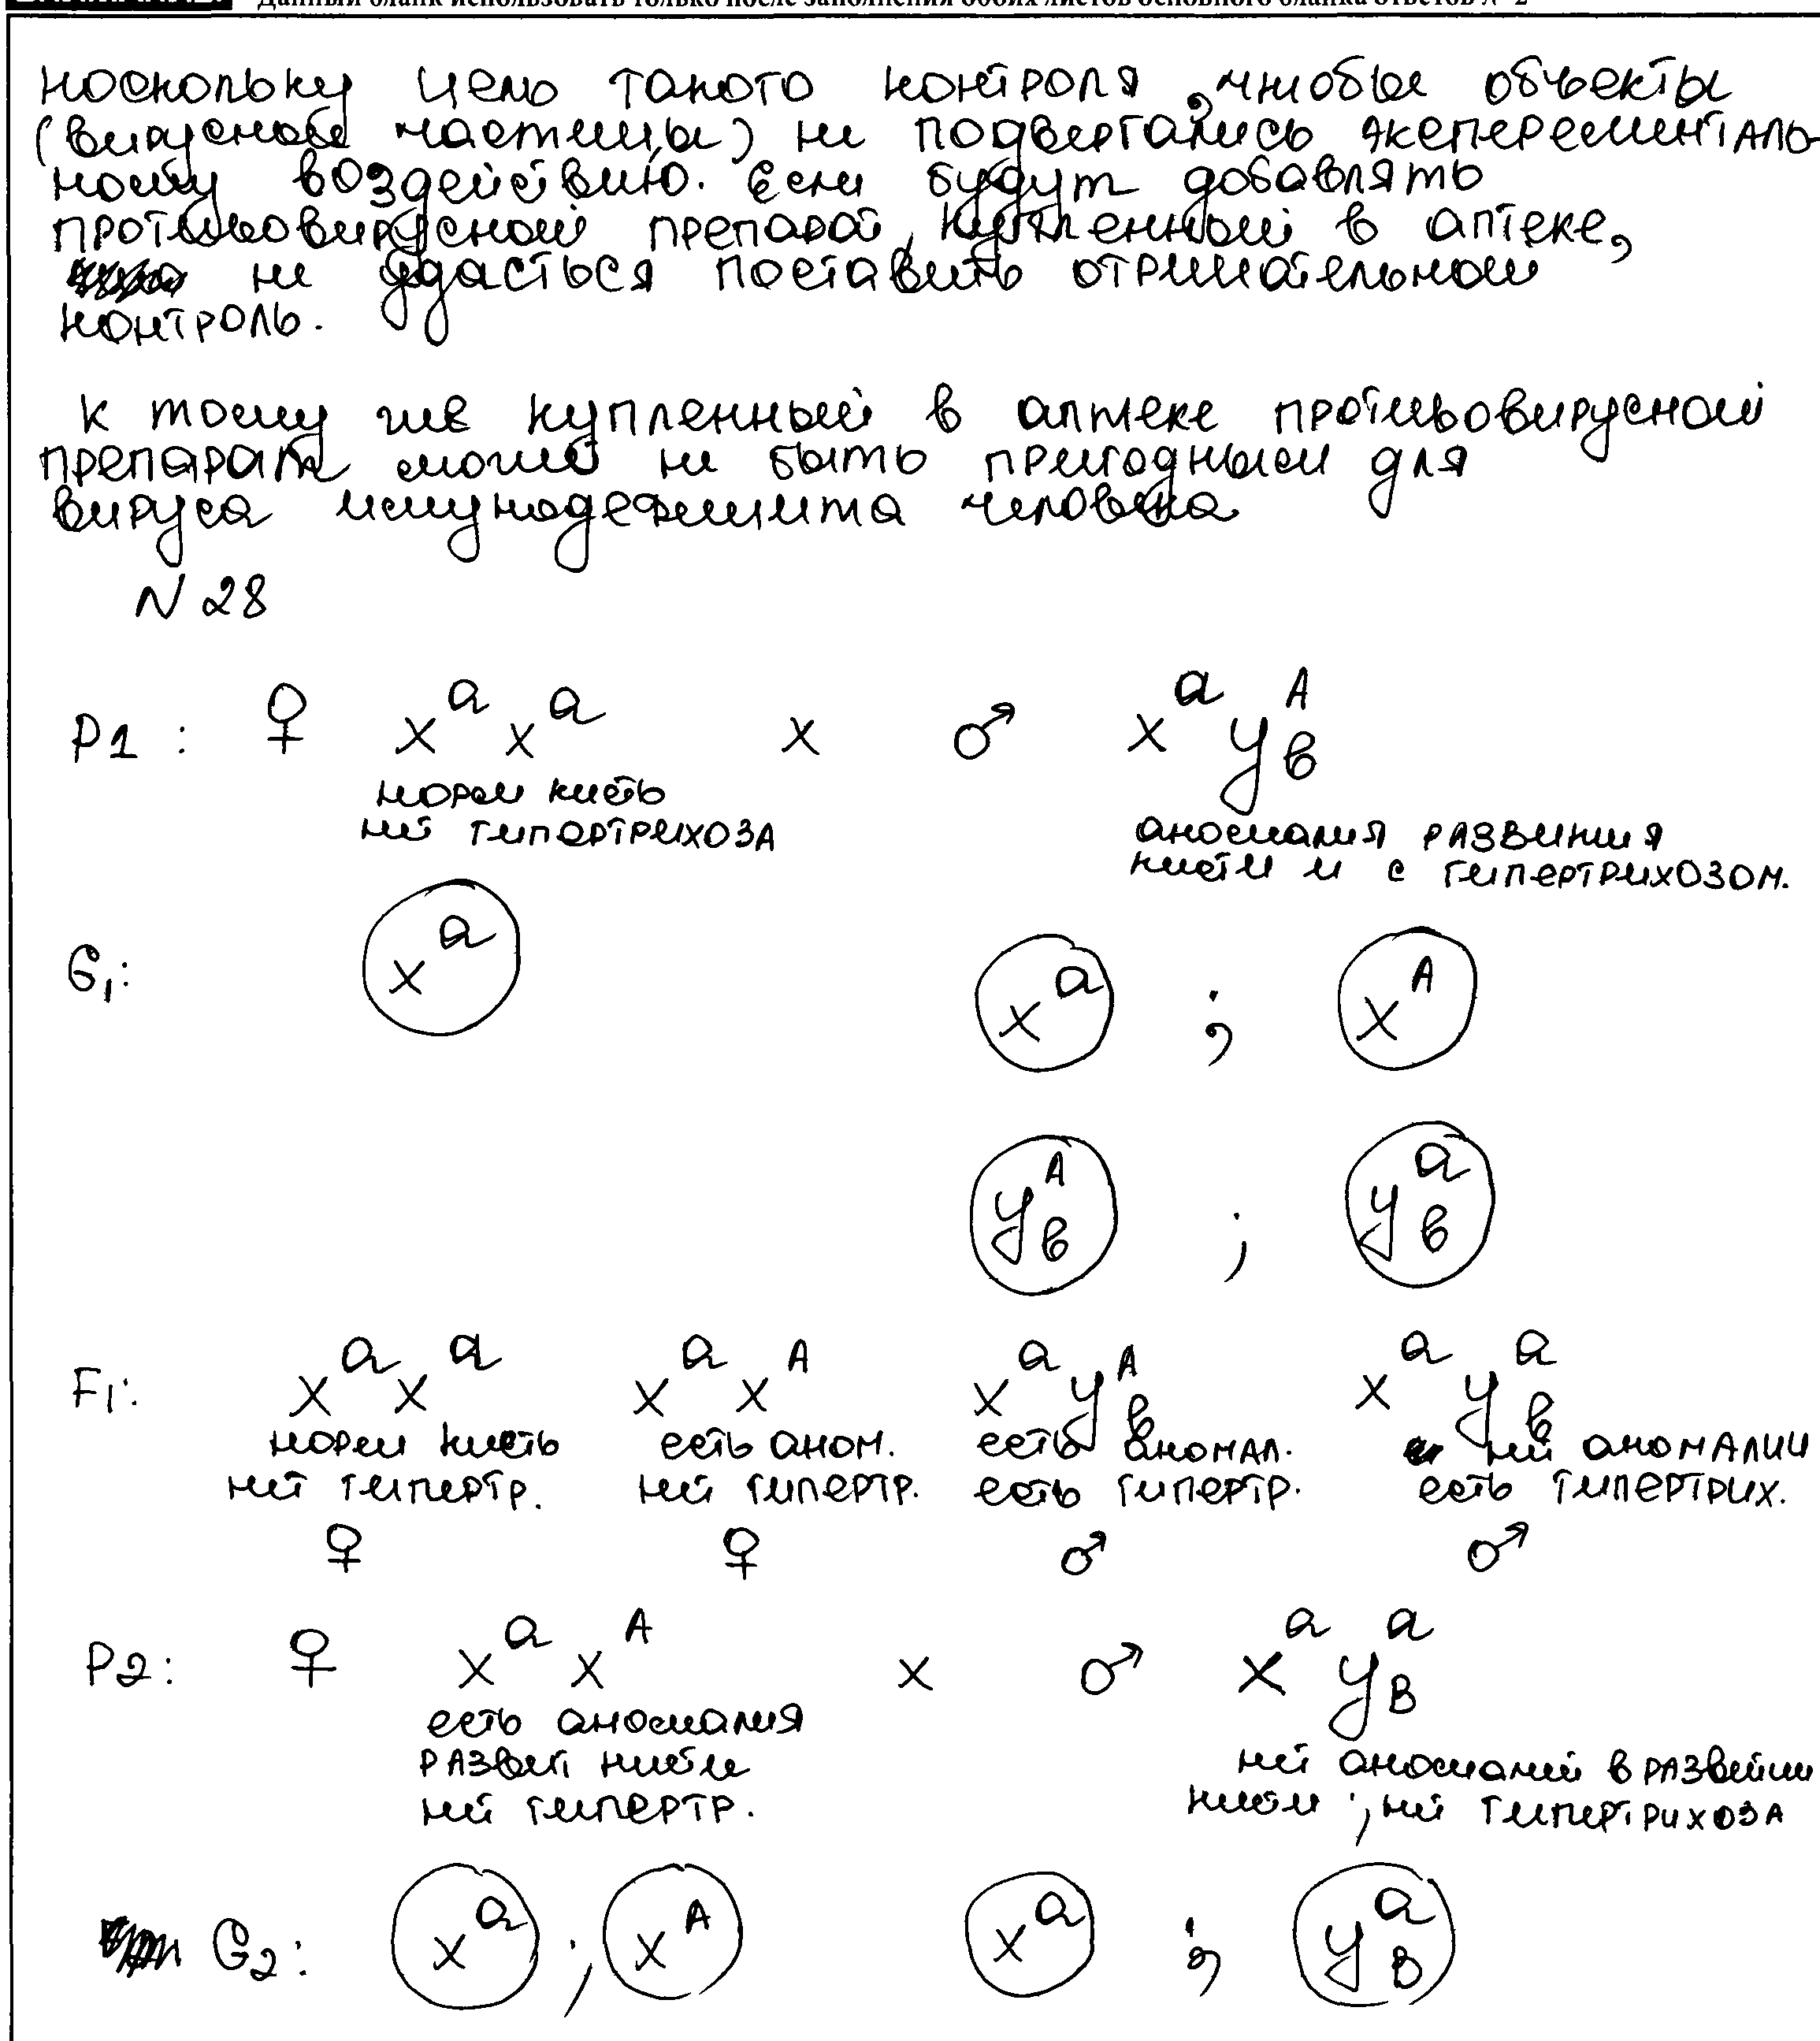 Данный бланк использовать только после заполнения обоих листов основного бланка ответов № 2
поскольку цель такого контроля, чтобы объекты
(вирусной частицы) не подвергались экеперементаль-
ному воздействию. Если будут добавлять
противовирусной препарат, купленный в аптеке,
не удасться поставить отрицательной
контроль.
К тому же купленный в аптеке противовирусной
препарат может не быть пригодным для
вируса имунодефицита человека
N 28
P1 : ♀ x^a x^a x ♂ x^a y^A_в
норм кисть
нет гипертрихоза
аномалия развития
кисти и с гипертрихозом.
G1: x^a x^a ; x^A
y^A_в ; y^a_в
F1: x^a x^a x^a x^A x^a y^A_в x^a y^a_в
норм кисть есть аном. есть аномал. нет аномалии
нет гипертр. нет гипертр. есть гипертр. есть гипертрих.
♀ ♀ ♂ ♂
P2: ♀ x^a x^A x ♂ x^a y^a_B
есть аномалия
развит кисти
нет гипертр.
нет аномалий в развитии
кисти ; нет гипертрихоза
G2: x^a ; x^A x^a ; y^a_B